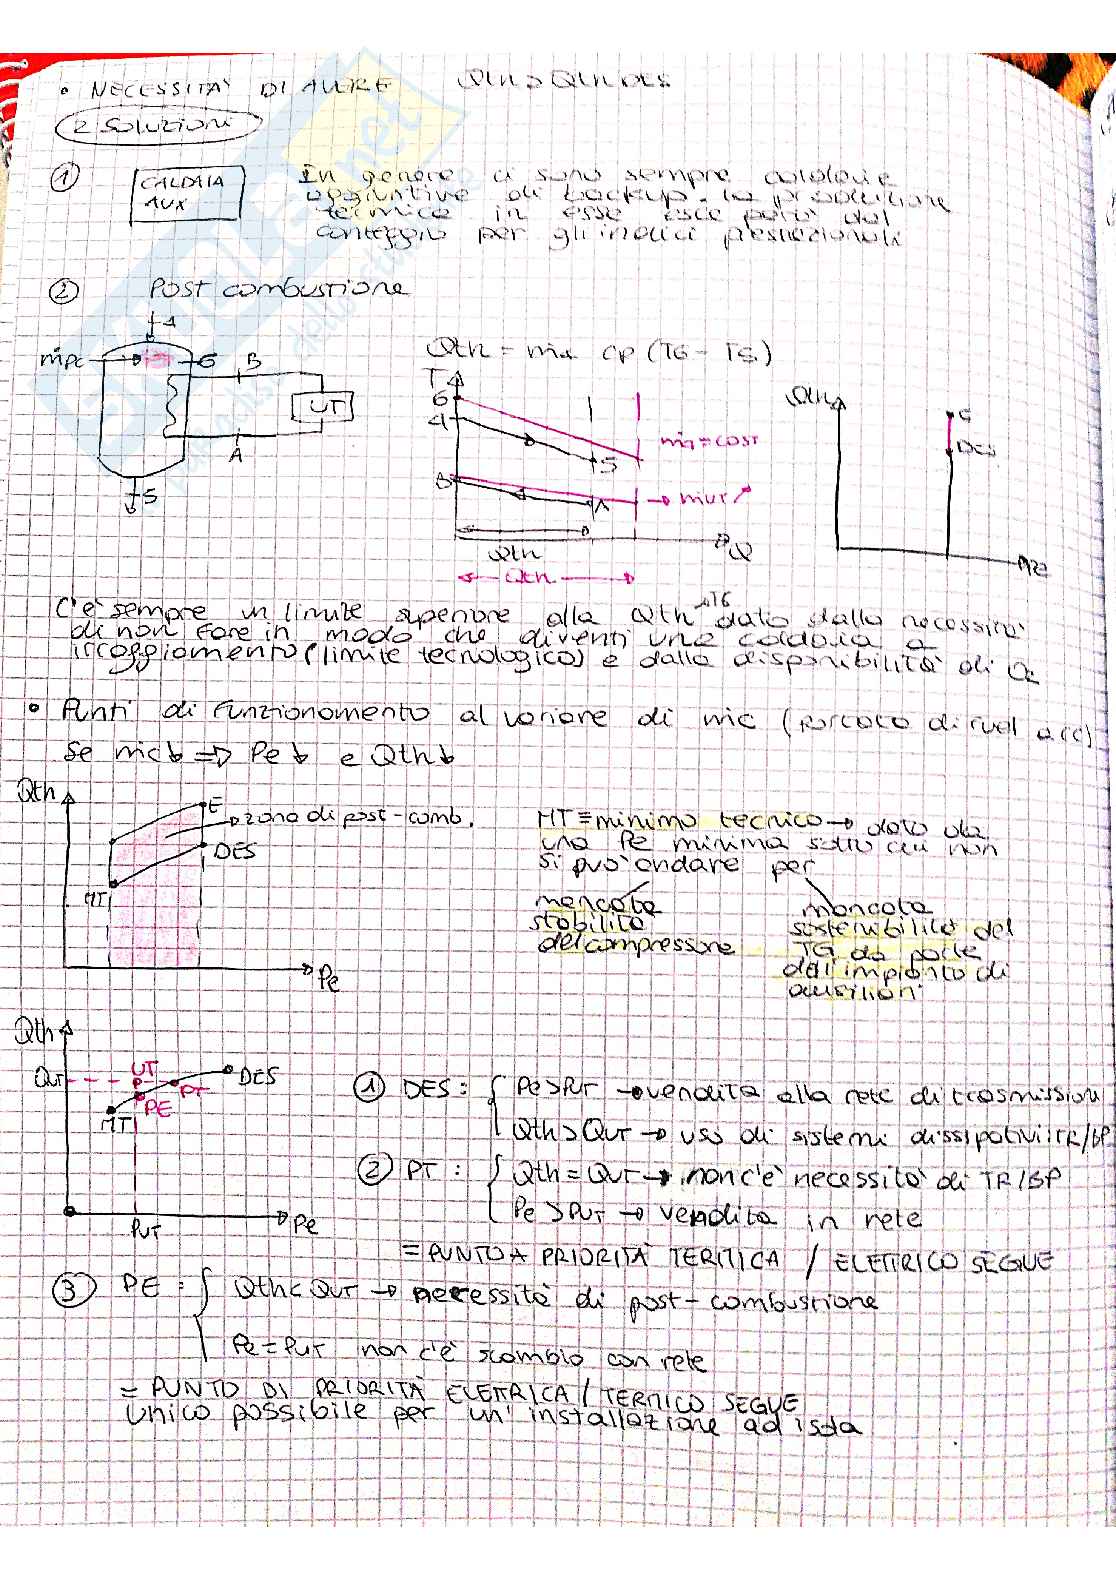 • NECESSITÀ DI AVERE Qth > Qth DES
2 SOLUZIONI
1 CALDAIA AUX
In genere ci sono sempre caldaie
aggiuntive di backup. La produzione
termica in esse esce però dal
conteggio per gli indici prestazionali
2 Post combustione
4
ṁpc 6 B
UT
A
5
Qth = ṁa cp (T6 - T5)
T
6
4
5
ṁa = cost
B
A
→ ṁUT ↗
Qth
Q
Qth
Qth
E
DES
Pe
C'è sempre un limite superiore alla Qth dato dalla necessità
di non fare in modo che diventi una caldaia a
irraggiamento (limite tecnologico) e dalla disponibilità di O2
• Punti di funzionamento al variare di ṁc
Se ṁc↓ => Pe ↓ e Qth↓
Qth
E
zona di post-comb.
DES
MT
Pe
MT = minimo tecnico → dato da
una Pe minima sotto cui non
si può andare per
mancata
stabilità
del compressore
mancata
sostenibilità del
TG da parte
dell'impianto di
ausiliari
Qth
QUT
UT
DES
PT
PE
MT
PUT
Pe
1 DES: { Pe > PUT → vendita alla rete di trasmissione
Qth > QUT → uso di sistemi dissipativi TR/BP
2 PT: { Qth = QUT → non c'è necessità di TR/BP
Pe > PUT → vendita in rete
= PUNTO A PRIORITÀ TERMICA / ELETTRICO SEGUE
3 PE: { Qth < QUT → necessità di post-combustione
Pe = PUT non c'è scambio con rete
= PUNTO DI PRIORITÀ ELETTRICA / TERMICO SEGUE
Unico possibile per un'installazione ad isola